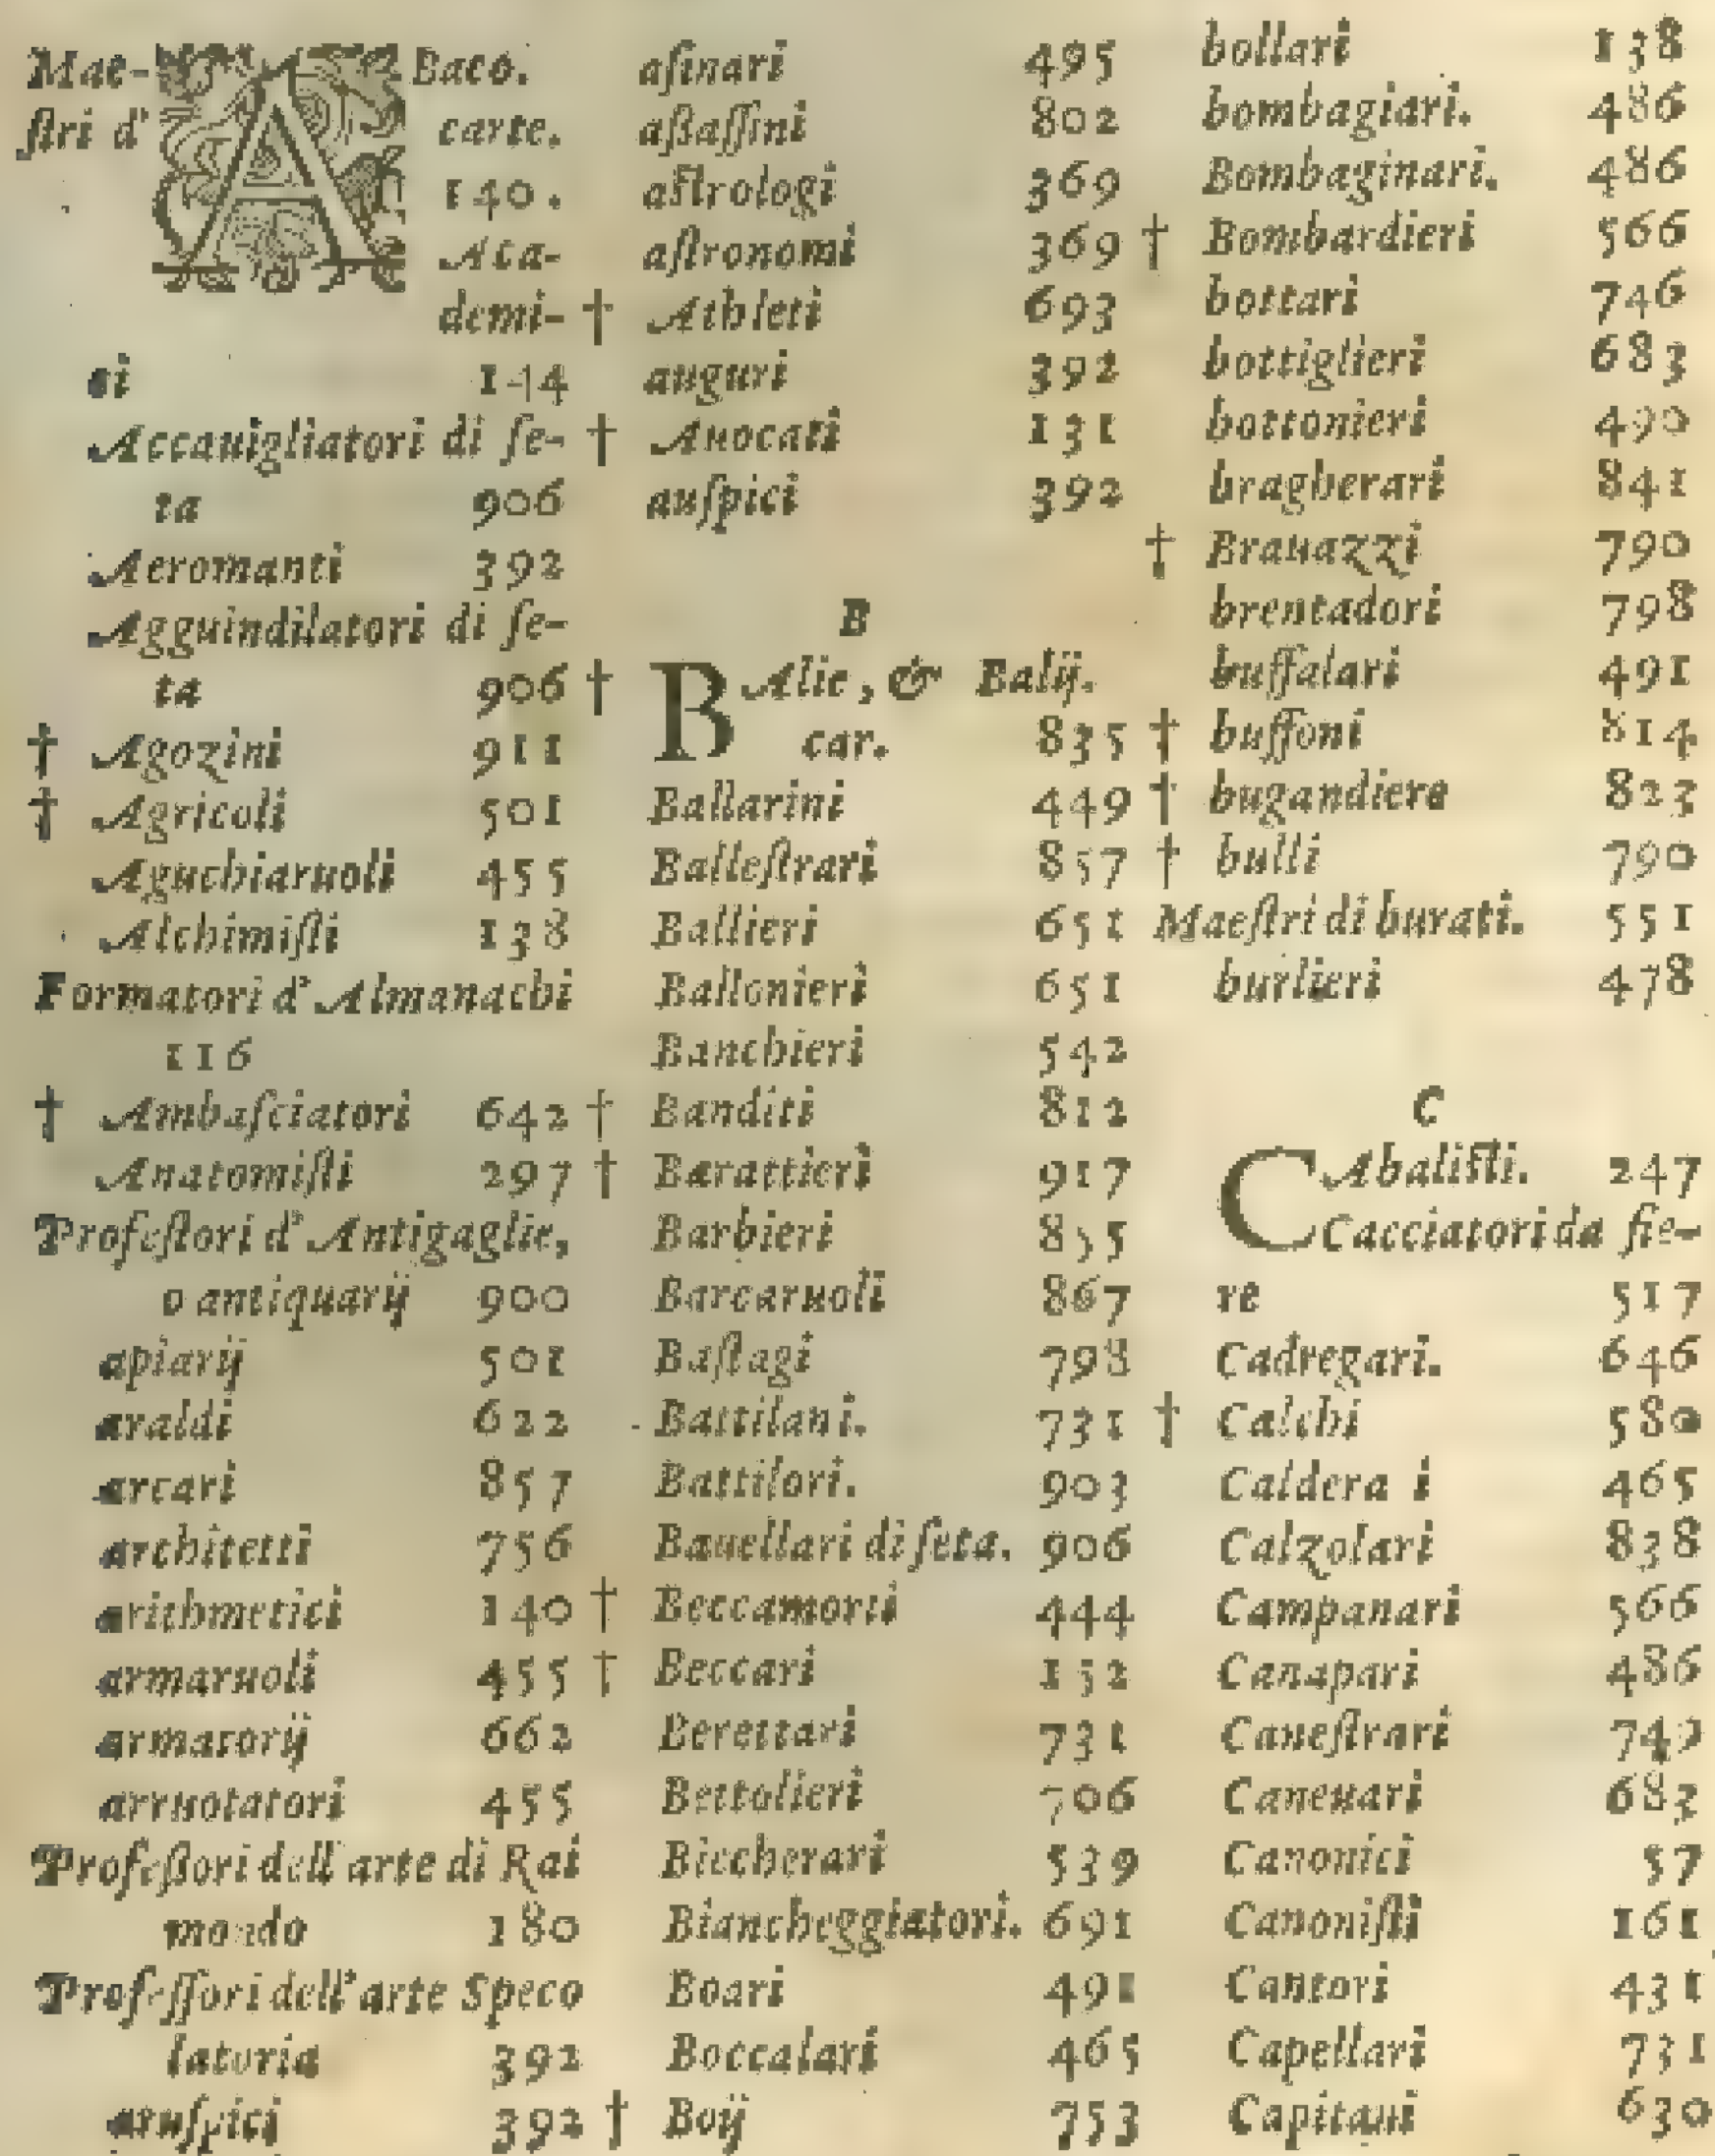 Mae- A Baco.
ſtri d' carte.
140.
Aca-
demi-
ci 144
Accauigliatori di ſe-
ta 906
Aeromanti 392
Agguindilatori di ſe-
ta 906
† Agozini 911
† Agricoli 501
Aguchiaruoli 455
Alchimiſti 138
Formatori d'Almanachi
116
† Ambaſciatori 642
Anatomiſti 297
Profeſſori d'Antigaglie,
o antiquarij 900
apiarij 501
araldi 622
arcari 857
architetti 756
arithmetici 140
armaruoli 455
armatorij 662
arruotatori 455
Profeßori dell'arte di Rai
mondo 180
Profeſſori dell'arte Speco
latoria 392
aruſpici 392
aſinari 495
aſſaſſini 802
aſtrologi 369
aſtronomi 369
† Athleti 693
auguri 392
† Auocati 131
auſpici 392
B
† BAlie, & Balij.
car. 835
Ballarini 449
Balleſtrari 857
Ballieri 651
Ballonieri 651
Banchieri 542
† Banditi 812
† Barattieri 917
Barbieri 855
Barcaruoli 867
Baſtagi 798
Battilani. 731
Battilori. 903
Bauellari di ſeta. 906
† Beccamorti 444
† Beccari 152
Berettari 731
Bettolieri 706
Biccherari 539
Biancheggiatori. 691
Boari 491
Boccalari 465
† Boij 753
bollari 138
bombagiari. 486
Bombaginari. 486
† Bombardieri 566
bottari 746
bottiglieri 683
bottonieri 490
bragherari 841
† Brauazzi 790
brentadori 798
buffalari 491
† buffoni 814
† bugandiere 823
† bulli 790
Maeſtri di burati. 551
burlieri 478
C
CAbaliſti. 247
Cacciatori da fie-
re 517
Cadregari. 646
† Calchi 580
Caldera i 465
Calzolari 838
Campanari 566
Canapari 486
Caneſtrari 749
Caneuari 683
Canonici 57
Canoniſti 161
Cantori 431
Capellari 731
Capitani 630